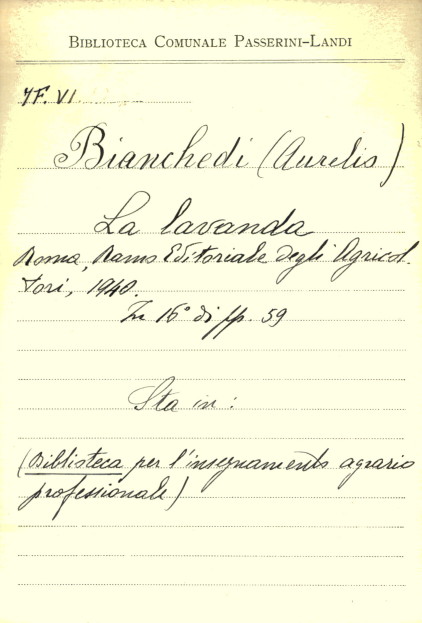 BIBLIOTECA COMUNALE PASSERINI-LANDI
7F. VI
Bianchedi (Aurelio)
La lavanda
Roma, Ramo Editoriale degli Agricol-
tori, 1940.
In 16° di pp. 59
Sta in:
(Biblioteca per l'insegnamento agrario
professionale)